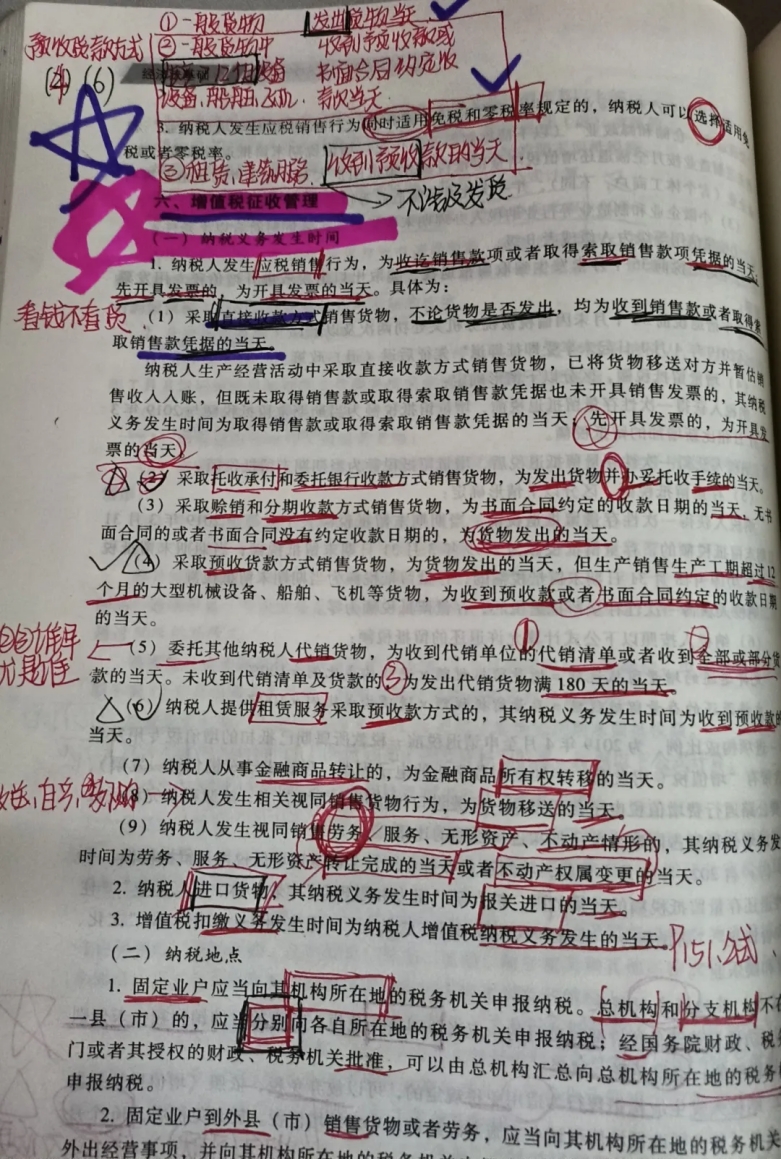 ①一般货物 发出货物当天
预收货款方式 ②一般货物中 收到预收款或
(4) (6) 设备 书面合同约定收
设备、船舶、飞机 款当天
3. 纳税人发生应税销售行为同时适用免税和零税率规定的，纳税人可以选择适用免
税或者零税率。
③租赁、建筑服务 收到预收款的当天
六、增值税征收管理 不涉及发货
（一）纳税义务发生时间
1. 纳税人发生应税销售行为，为收讫销售款项或者取得索取销售款项凭据的当天；
先开具发票的，为开具发票的当天。具体为：
看钱不看货
（1）采取直接收款方式销售货物，不论货物是否发出，均为收到销售款或者取得索
取销售款凭据的当天。
纳税人生产经营活动中采取直接收款方式销售货物，已将货物移送对方并暂估销
售收入入账，但既未取得销售款或取得索取销售款凭据也未开具销售发票的，其纳税
义务发生时间为取得销售款或取得索取销售款凭据的当天；先开具发票的，为开具发
票的当天。
（2）采取托收承付和委托银行收款方式销售货物，为发出货物并办妥托收手续的当天。
（3）采取赊销和分期收款方式销售货物，为书面合同约定的收款日期的当天，无书
面合同的或者书面合同没有约定收款日期的，为货物发出的当天。
（4）采取预收货款方式销售货物，为货物发出的当天，但生产销售生产工期超过12
个月的大型机械设备、船舶、飞机等货物，为收到预收款或者书面合同约定的收款日期
的当天。
（5）委托其他纳税人代销货物，为收到代销单位的代销清单或者收到全部或部分货
① ② ③
款的当天。未收到代销清单及货款的为发出代销货物满180天的当天
（6）纳税人提供租赁服务采取预收款方式的，其纳税义务发生时间为收到预收款的
当天。
（7）纳税人从事金融商品转让的，为金融商品所有权转移的当天。
（8）纳税人发生相关视同销售货物行为，为货物移送的当天。
（9）纳税人发生视同销售劳务、服务、无形资产、不动产情形的，其纳税义务发
时间为劳务、服务、无形资产转让完成的当天或者不动产权属变更的当天。
2. 纳税人进口货物，其纳税义务发生时间为报关进口的当天。
3. 增值税扣缴义务发生时间为纳税人增值税纳税义务发生的当天。 P151.公式
（二）纳税地点
1. 固定业户应当向其机构所在地的税务机关申报纳税。总机构和分支机构不在
一县（市）的，应当分别向各自所在地的税务机关申报纳税；经国务院财政、税
门或者其授权的财政、税务机关批准，可以由总机构汇总向总机构所在地的税务
申报纳税。
2. 固定业户到外县（市）销售货物或者劳务，应当向其机构所在地的税务机关
外出经营事项，并向其机构所在地的税务机关